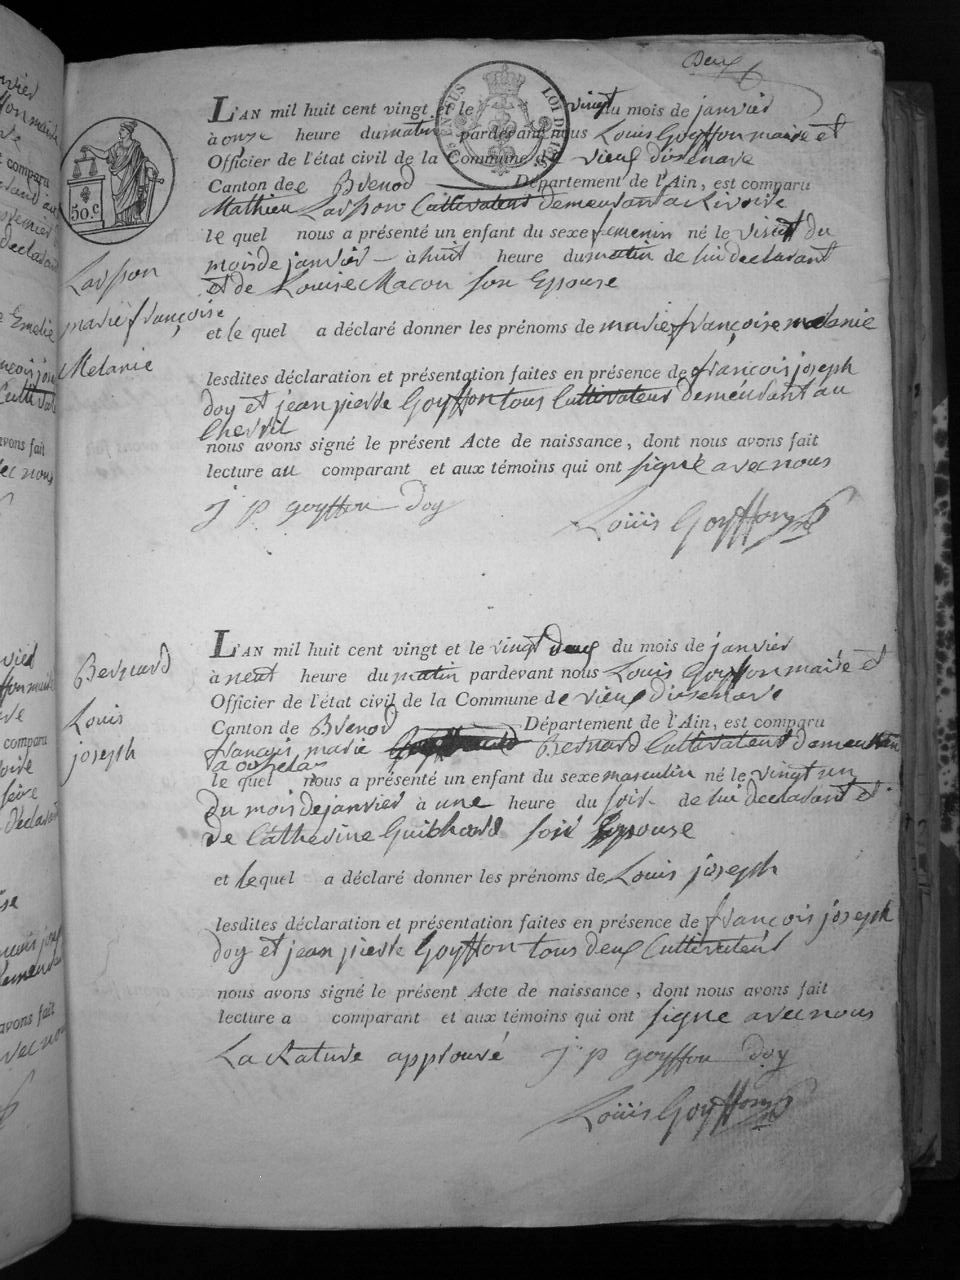 Deux
L'AN mil huit cent vingt et le vingt du mois de janvier
à onze heure du matin pardevant nous Louis Goyffon maire et
Officier de l'état civil de la Commune de vieux disenave
Canton de Brenod Département de l'Ain, est comparu
Mathieu Larsson Cultivateur demeurant a Rivoire
le quel nous a présenté un enfant du sexe femenin né le vingt du
mois de janvier à huit heure du matin de lui declarant
et de Louise Macon son Epouse
et le quel a déclaré donner les prénoms de marie françoise melanie
lesdites déclaration et présentation faites en présence de françois joseph
doy et jean pierre Goyffon tous Cultivateur demeurant au
Chevril
nous avons signé le présent Acte de naissance, dont nous avons fait
lecture au comparant et aux témoins qui ont signé avec nous
j p goyffon Doy
Louis Goyffon
50 c
Larsson
marie françoise
Melanie
L'AN mil huit cent vingt et le vingt deux du mois de janvier
à neuf heure du matin pardevant nous Louis Goyffon maire et
Officier de l'état civil de la Commune de vieux disenave
Canton de Brenod Département de l'Ain, est comparu
françois marie Bernard Cultivateur demeurant
le quel nous a présenté un enfant du sexe masculin né le vingt un
du mois de janvier à une heure du soir de lui declarant et
de Catherine Guichard son Epouse
et le quel a déclaré donner les prénoms de Louis joseph
lesdites déclaration et présentation faites en présence de françois joseph
doy et jean pierre Goyffon tous deux Cultivateur
nous avons signé le présent Acte de naissance, dont nous avons fait
lecture a comparant et aux témoins qui ont signé avec nous
La Rature approuvé j p goyffon Doy
Louis Goyffon
Bernard
Louis
joseph